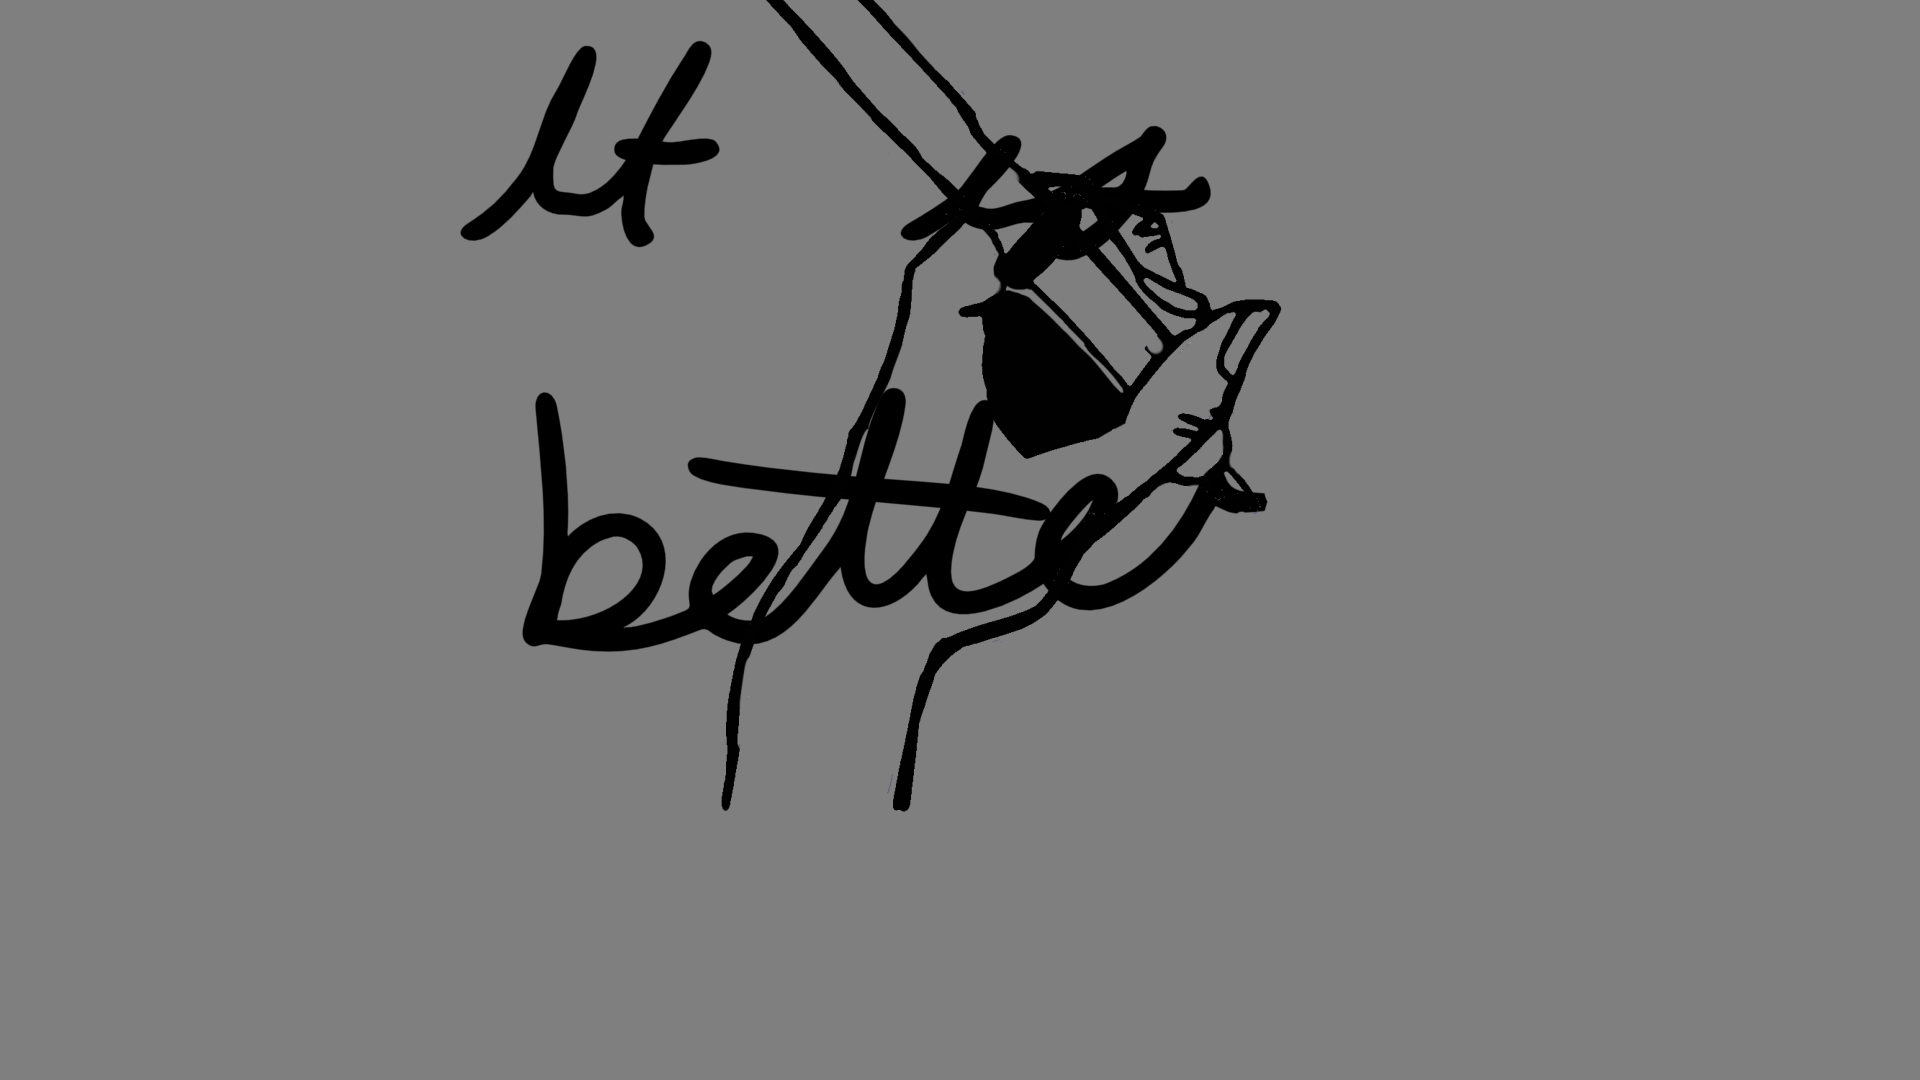 It is
bette